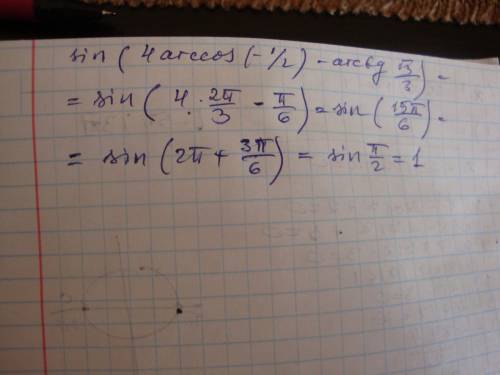 sin ( 4 arccos (-1/2) - arctg √3/3 ) =
= sin ( 4 · 2π/3 - π/6 ) = sin ( 15π/6 ) =
= sin ( 2π + 3π/6 ) = sin π/2 = 1